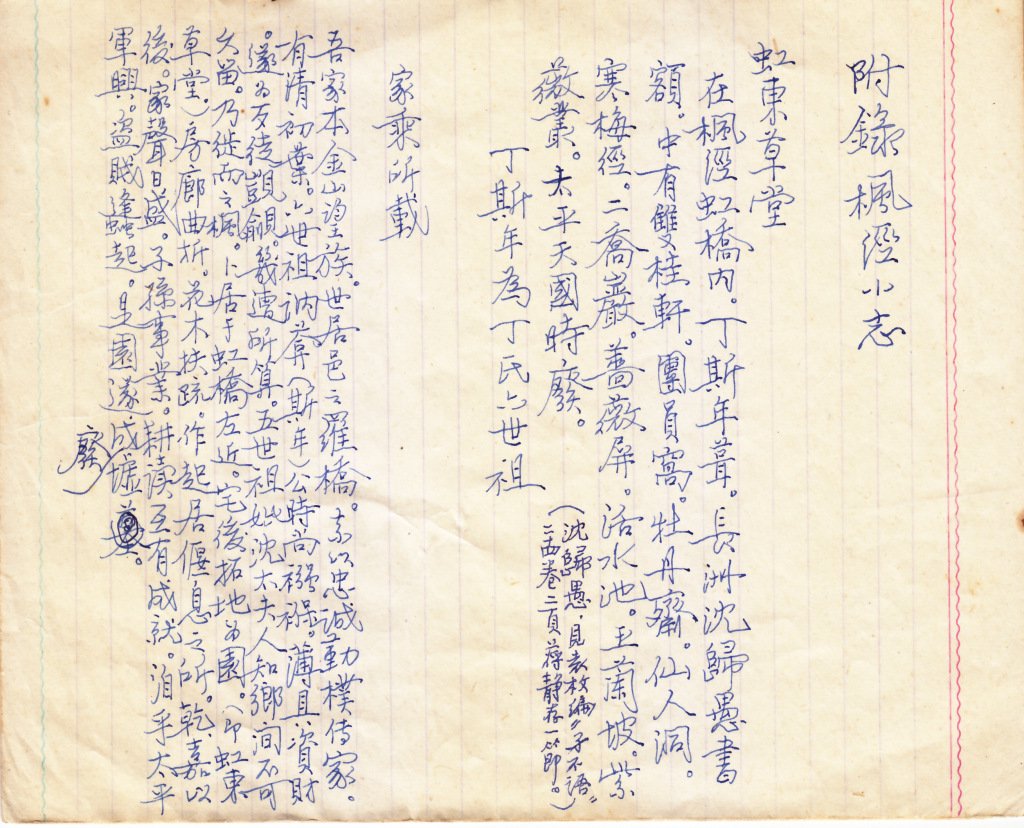 附錄楓涇小志
虹東草堂
在楓涇虹橋內。丁斯年葺。長洲沈歸愚書
額。中有雙桂軒。團員窩。牡丹齋。仙人洞。
寒梅徑。二喬巖。薔薇屏。活水池。玉蘭坡。紫
薇叢。太平天國時廢。
(沈歸愚，見袁枚編"子不語"
二四卷二頁蔣靜存一的即。)
丁斯年為丁氏六世祖
家乘所載
吾家本金山望族。世居邑之羅橋。素以忠誠勤樸傳家。
有清初葉。六世祖訥葊(斯年)公時尚襁褓。薄具資財
。遂為歹徒覬覦。幾遭所算。五世祖妣沈太夫人知鄉間不可
久留。乃徙而之楓。卜居于虹橋左近。宅後拓地為園。(即虹東
草堂。)房廊曲折。花木扶疏。作起居偃息之所。乾嘉以
後。家聲日盛。子孫事業。耕讀互有成就。洎乎太平
軍興。盜賊蜂起。是園遂成墟
廢)